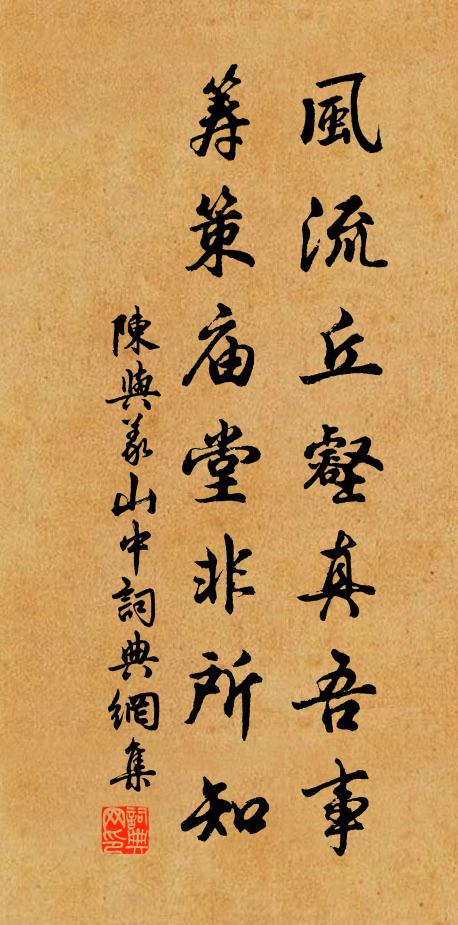 風流丘壑真吾事
筹策庙堂非所知
陳與義山中詞典網集
詞典网印